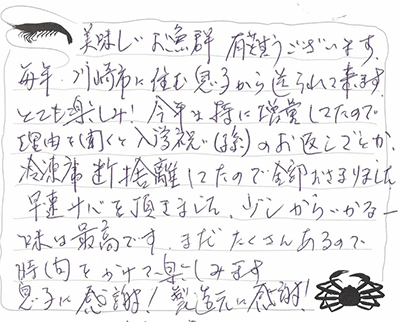 美味しいお漁群 有難うございます。
毎年、川崎市に住む息子から送られて来ます
とても楽しみ！今年は特に増量してたので
理由を聞くと入学祝い(孫)のお返しでとか、
冷凍庫断捨離してたので全部おさまりました
早速 を頂きました。少しからいかなー
味は最高です。まだたくさんあるので
時間をかけて楽しみます
息子に感謝！製造元に感謝！